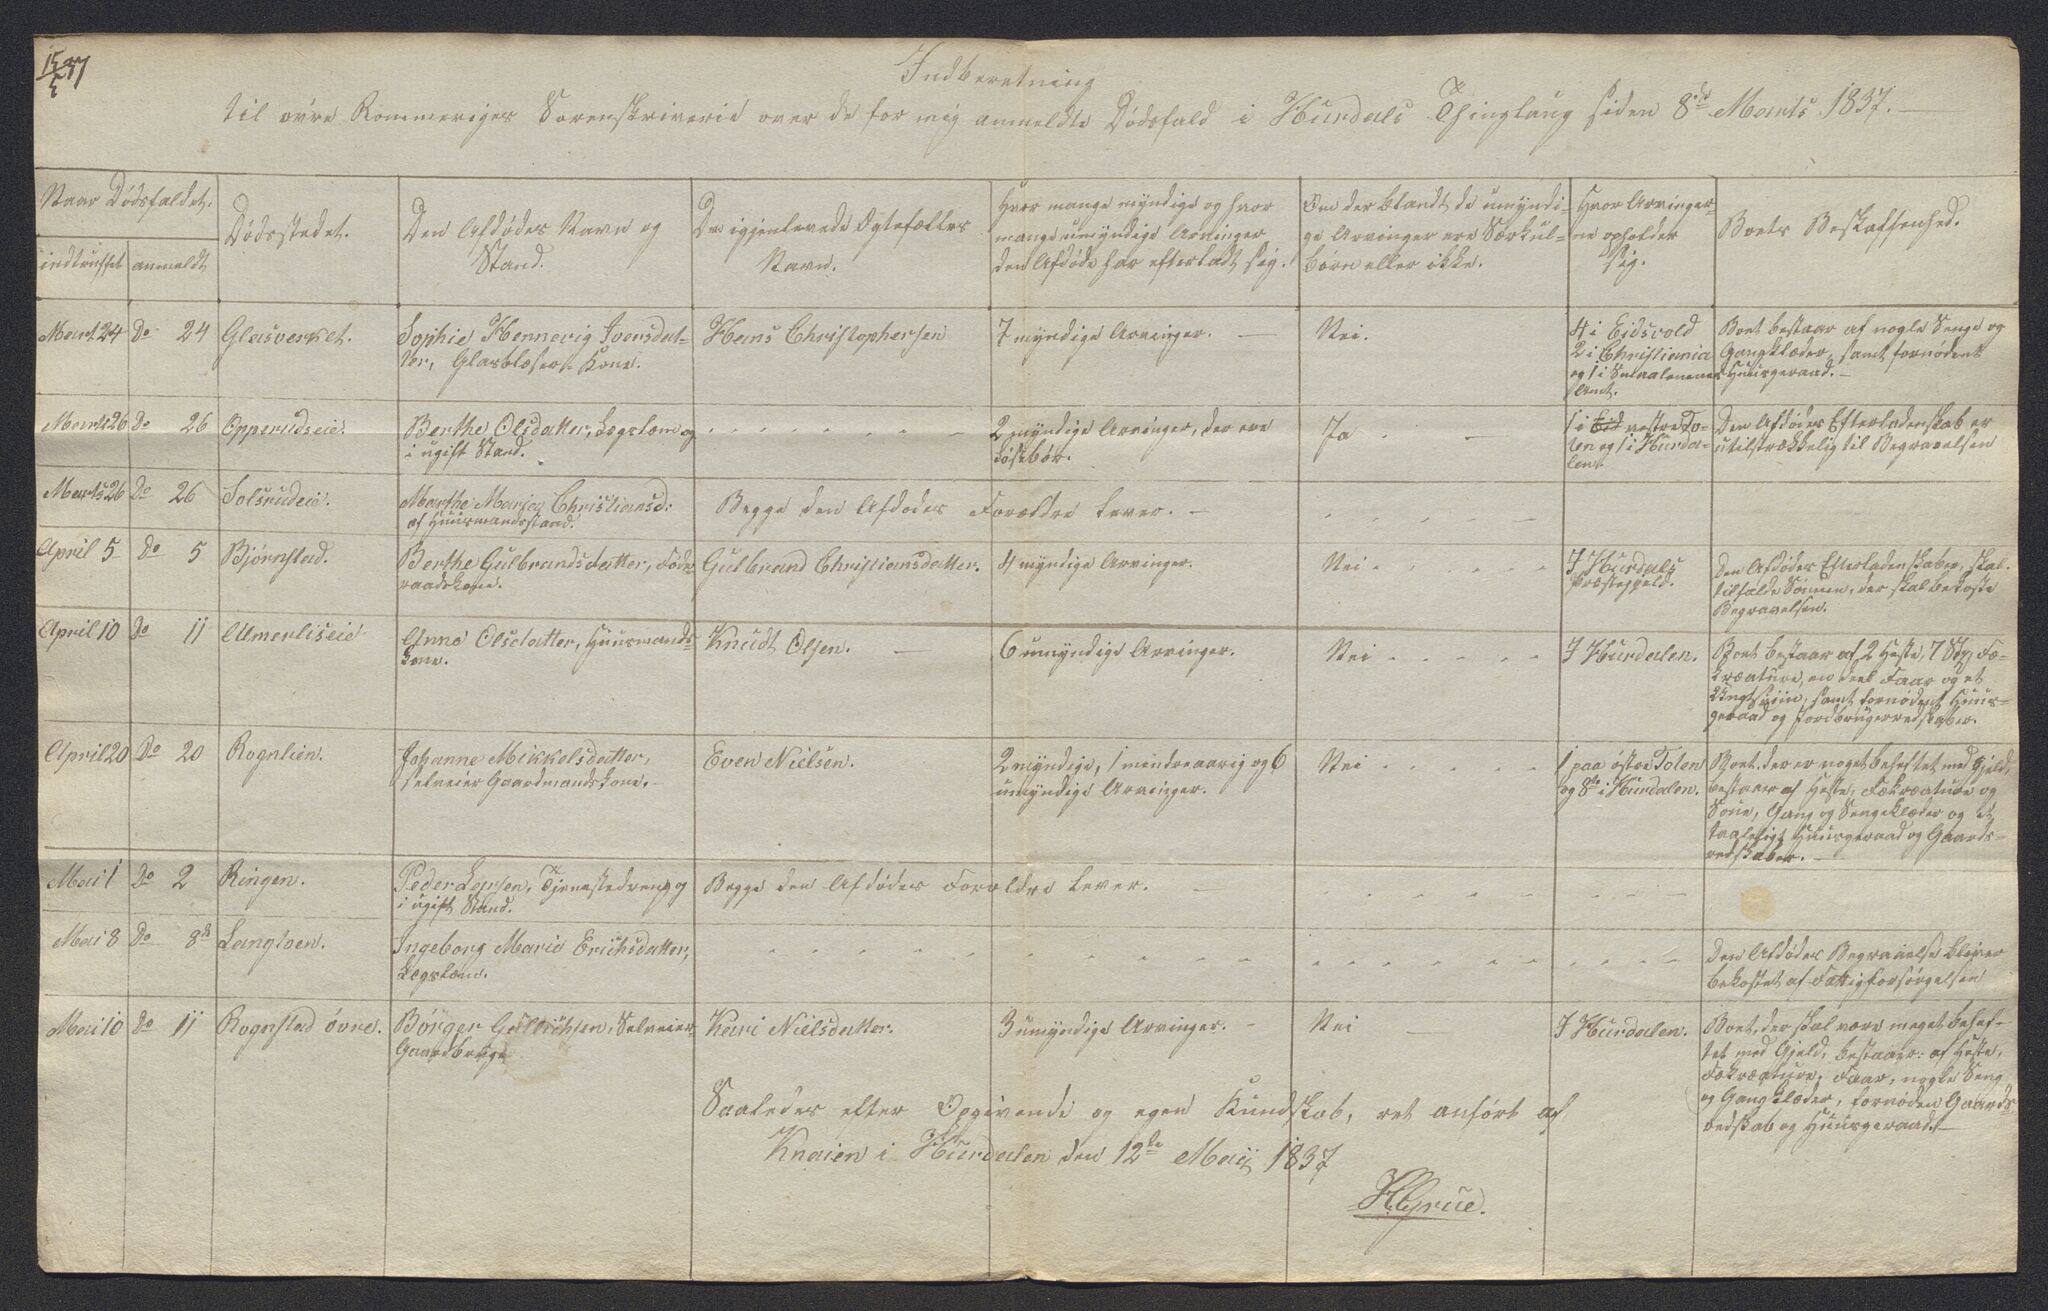 15/5 37
Indberetning
til øvre Rommeriges Sorenskriverie over de for mig anmeldte Dødsfald i Hurdals Thinglaug siden 8de Marts 1837.
Naar Dødsfaldet.
indtruffet
anmeldt
Dødsstedet.
Den Afdødes Navn og
Stand.
Den igjenlevende Ægtefælles
Navn.
Hvor mange myndige og hvor
mange umyndige Arvinger
den Afdøde har efterladt sig.
Om der blandt de umyndi-
ge Arvinger ere Særkul-
børn eller ikke.
Hvor Arvinger-
ne opholder
sig.
Boets Beskaffenhed.
Mart 24 Do 24 Glasverket.
Sophie Hennevig Iversdat-
ter, Glasblæser Kone.
Hans Christophersen
7 myndige Arvinger. —
Nei.
4 i Eidsvold
2 i Christiania
og 1 i Smaalenenes
Amt.
Boet bestaar af nogle Senge og
Gangklæder, samt fornødent
Huusgeraad. —
Marts 26 Do 26 Opperudseie.
Berthe Olsdatter, Legslem og
i ugift Stand.
2 myndige Arvinger, der ere
Løsebør.
Ja
1 i Eid vestre To-
ten og 1 i Hurda-
len.
Den Afdødes Efterladenskab er
utilstrækkelig til Begravelsen
Marts 26 Do 26 Solsrudeie.
Marthe Marja Christiansd.
af Huusmandsstand.
Begge den Afdødes Forældre Lever. —
April 5 Do 5 Bjørnstad.
Berthe Gulbrandsdatter, Føde-
raadskone.
Gulbrand Christiansdatter.
4 myndige Arvinger.
Nei
I Hurdals
Præstegjeld.
Den Afdødes Efterladenskaber, skal
tilfalde Sønnen, der skal bekoste
Begravelsen.
April 10 Do 11 Amerliseie
Anne Olsdatter, Huusmands-
kone.
Knudt Olsen. —
6 umyndige Arvinger.
Nei
I Hurdalen.
Boet bestaar af 2 Heste, 7 Stk Fæ-
kræature, en deel Faar og et
Ungtsviin, samt fornødent Huus-
geraad og Jordbrugerredskaber.
April 20 Do 20 Rognlien.
Johanne Mikkelsdatter,
selveier Gaardmandskone. -
Even Nielsen.
2 myndige, 1 mindreaarig og 6
umyndige Arvinger.
Nei
1 paa østre Toten
og 8te i Hurdalen.
Boet der er noget beheftet med Gjeld,
bestaaer af Heste, Fækræature og
Soue, Gang og Sengeklæder og et
taaleligt Huusgeraad og Gaards-
redskaber. —
Mai 1 Do 2 Ringen.
Peder Larsen, Tjenestedreng og
i ugift Stand.
Begge den Afdødes Forældre Lever. —
Mai 8 Do 8de Langtoen.
Ingeborg Marie Erichsdatter,
Legslem.
Den Afdødes Begravelse bliver
bekostet af Fattigforsørgelsen
Mai 10 Do 11 Rognstad øvre.
Børger Selveier
Gaardbruger
Kari Nielsdatter.
3 umyndige Arvinger. —
Nei —
I Hurdalen.
Boet, der skal være meget behef-
tet med Gjeld, bestaaer: af Heste,
Fækræature, Faar, nogle Seng
og Gangklæder, fornøden Gaards-
redskab og Huusgeraad. —
Saaledes efter Opgivende og egen Kundskab, ret anført af
Knaien i Hurdalen den 12te Maij 1837
HGrue.